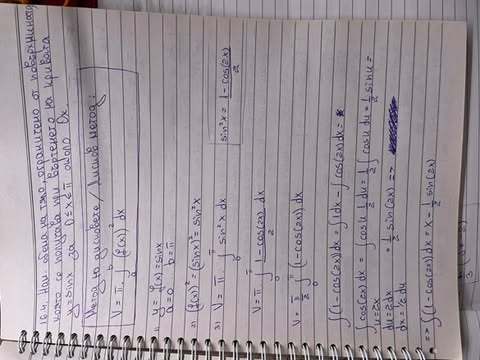 16.4. Нам. обема на тяло, ограничено от повърхнината,
която се получава при въртенето на кривата
y = sinx за 0 ≤ x ≤ π около Ox.
Метод на дисковете / Дисков метод:
V = π . ∫ₐᵇ (f(x))² dx
1) y = f(x) = sinx
a = 0 b = π
2) (f(x))² = (sinx)² = sin²x
3) V = π ∫₀^π sin²x dx sin²x = (1-cos(2x))/2
V = π ∫₀^π (1-cos(2x))/2 dx
V = π/2 ∫₀^π (1-cos(2x)) dx
∫(1-cos(2x))dx = ∫1dx - ∫cos(2x)dx =
∫cos(2x)dx = ∫cosu 1/2 du = 1/2 ∫cosu du = 1/2 sinu =
u = 2x
du = 2dx = 1/2 sin(2x) =>
dx = 1/2 du
=> ∫(1-cos(2x))dx = x - 1/2 sin(2x)